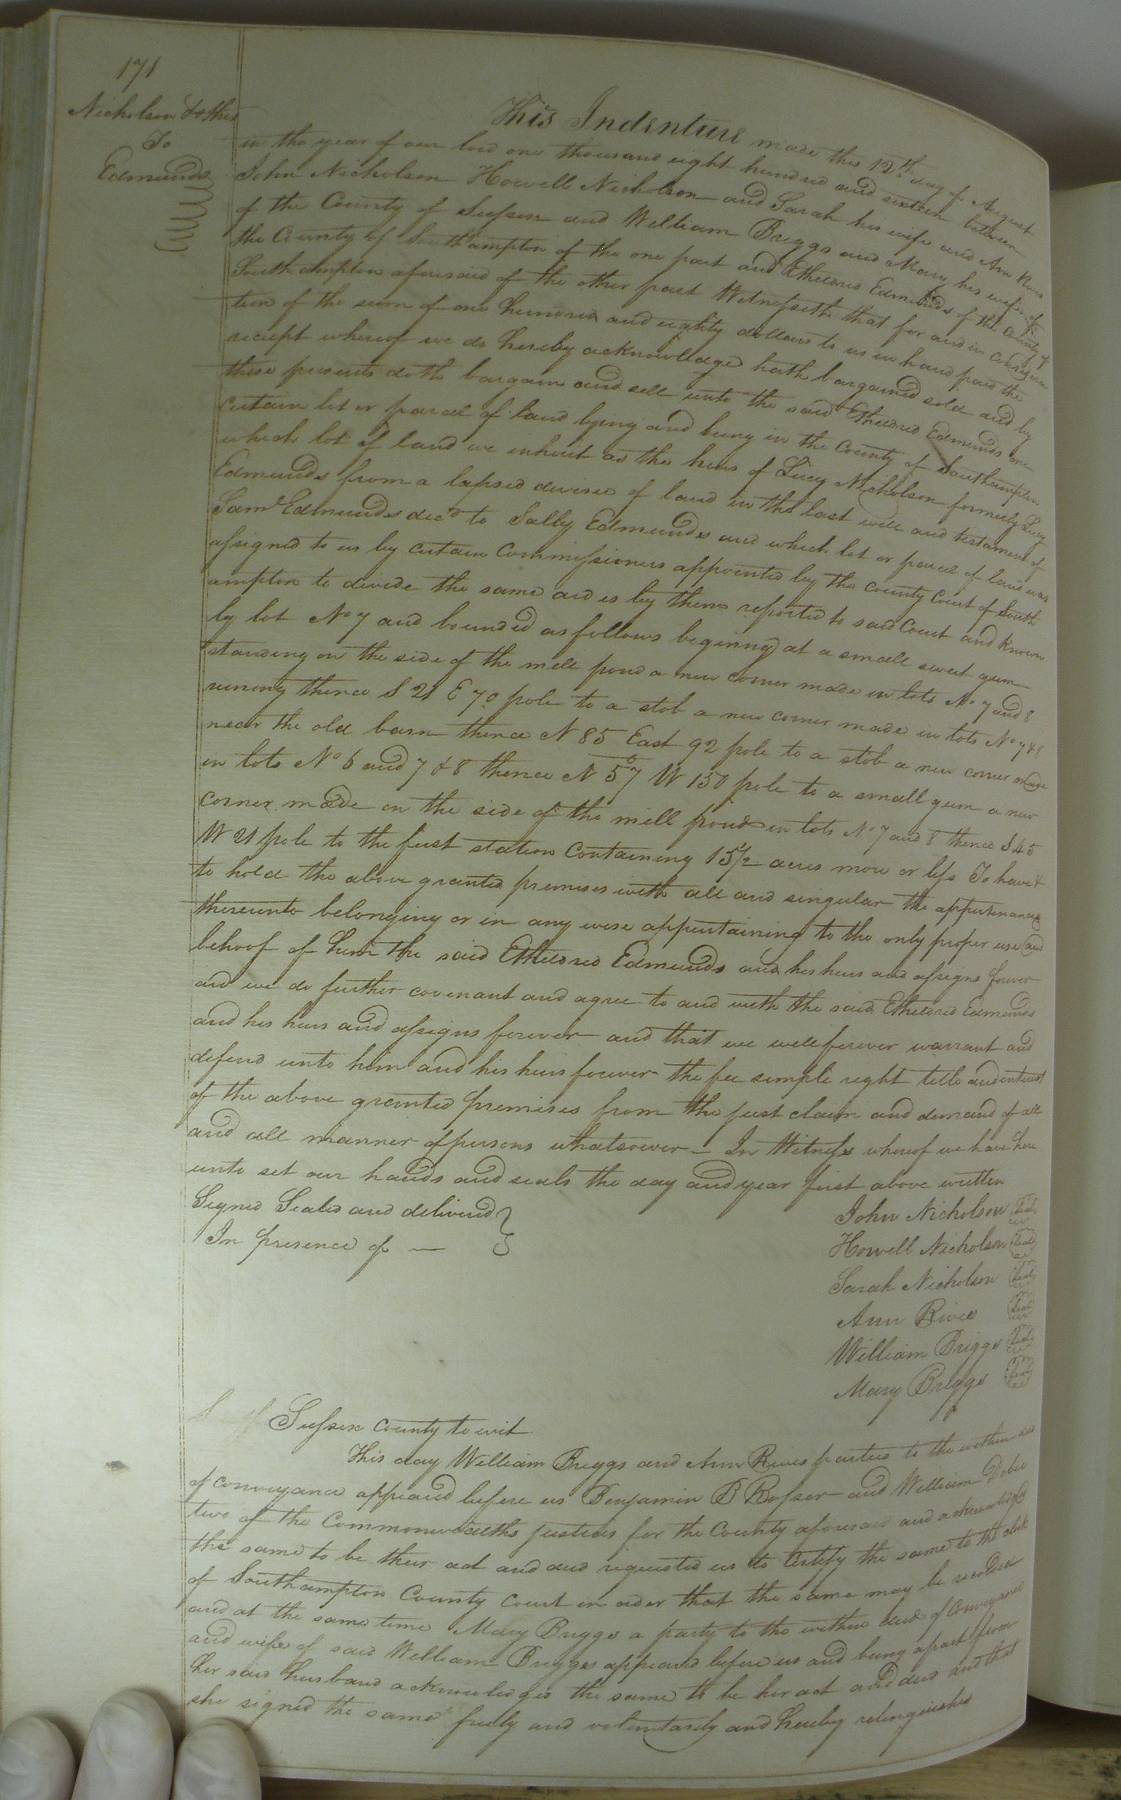 171
Nicholson & othrs
To
Edmunds
This Indenture made this 12th day of August
in the year of our lord one thousand eight hundred and sixteen between
John Nicholson Howell Nicholson and Sarah his wife and Ann Rives
of the County of Sussex and William Briggs and Mary his wife of
the County of Southampton of the one part and Etheldred Edmunds of the County of
Southampton aforesaid of the other part Witnesseth that for and in considera
tion of the sum of one hundred and eighty dollars to us in hand paid the
receipt whereof we do hereby acknowledge hath bargained sold and by
these presents doth bargain and sell unto the said Etheldred Edmunds one
certain lot or parcel of land lying and being in the County of Southampton
which lot of land we inherit as the heirs of Lucy Nicholson formerly Lucy
Edmunds from a lapsed devise of land in the last will and testament of
Saml Edmunds decd to Sally Edmunds and which lot or parcel of land was
assigned to us by certain Commissioners appointed by the county Court of South
ampton to divide the same and is by them reported to said Court and known
by lot No 7 and bounded as follows beginng at a small sweet gum
standing on the side of the mill pond a new corner made in lots No 7 and 8
runing thence S 21 E 70 pole to a stob a new corner made in lots No 7 & 8
near the old barn thence N 85 East 92 pole to a stob a new corner made
in lots No 6 and 7 & 8 thence N 57 W 150 pole to a small gum a new
corner made on the side of the mill pond in lots No 7 and 8 thence S 45
W 21 pole to the first station Containing 15 1/2 acres more or less To have &
to hold the above granted premises with all and singular the appurtenances
thereunto belonging or in any wise appertaining to the only proper use and
behoof of him the said Etheldred Edmunds and his heirs and assigns forever
and we do further covenant and agree to and with the said Etheldred Edmunds
and his heirs and assigns forever and that we will forever warrant and
defend unto him and his heirs forever the fee simple right title and interest
of the above granted premises from the just claim and demand of all
and all manner of persons whatsoever – In Witness whereof we have here
unto set our hands and seals the day and year first above written
Signed Sealed and delivered }
In presence of —
John Nicholson Seal
Howell Nicholson Seal
Sarah Nicholson Seal
Ann Rives Seal
William Briggs Seal
Mary Briggs Seal
Sussex County to wit
This day William Briggs and Ann Rives parties to the within deed
of conveyance appeared before us Benjamin B Rosser and William Dobie
two of the Commonwealths justices for the County aforesaid and acknowledged
the same to be their act and deed requested us to Certify the same to the clerk
of Southampton County Court in order that the same may be recorded
and at the same time Mary Briggs a party to the within deed of Conveyance
and wife of said William Briggs appeared before us and being apart from
her said husband acknowledged the same to be her act and deed and that
she signed the same freely and voluntarily and hereby relinquished